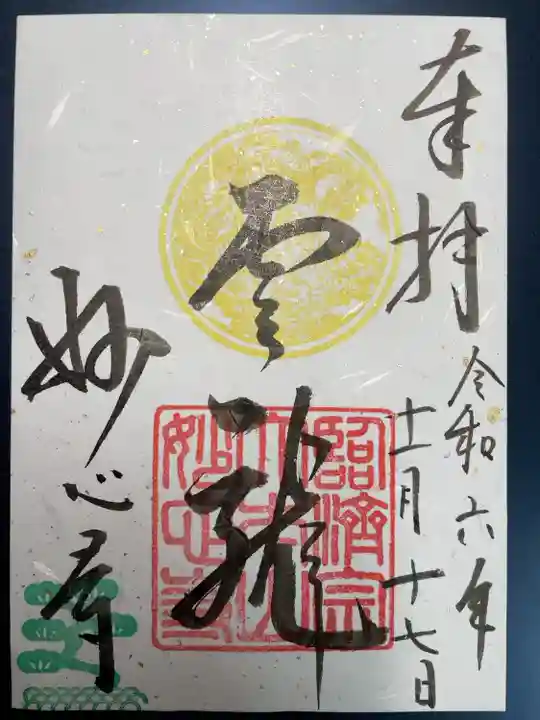 奉拝
令和六年
十一月十七日
雲龍
妙心寺
臨済宗
大本山
妙心寺